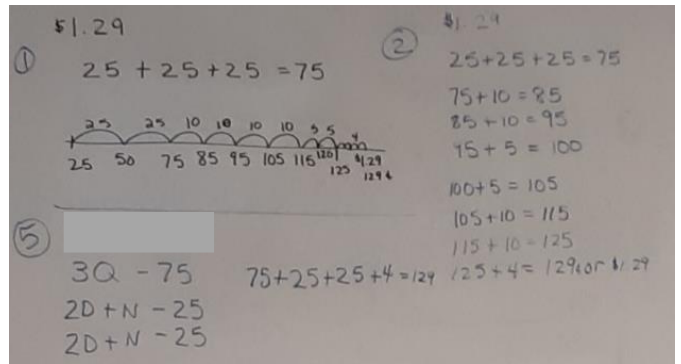 $1.29
① 25 + 25 + 25 = 75
25 25 10 10 10 10 5 5 4
25 50 75 85 95 105 115 120 125 $1.29
129¢
② $1.29
25+25+25=75
75+10=85
85+10=95
95+5=100
100+5=105
105+10=115
115+10=125
125+4=129¢ or $1.29
⑤
3Q - 75
2D+N - 25
2D+N - 25
75+25+25+4=129